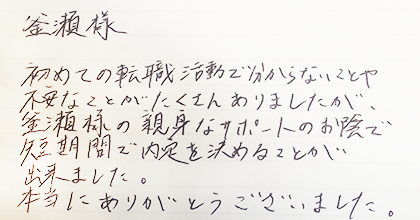 釜瀬様
初めての転職活動で分からないことや
不安なことがたくさんありましたが、
釜瀬様の親身なサポートのお陰で
短期間で内定を決めることが
出来ました。
本当にありがとうございました。